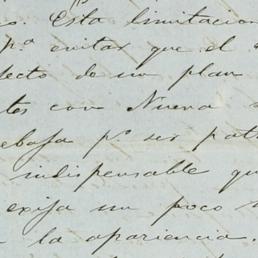 s. Esta limitacion
pª evitar que el
fecto de un plan
tes con Nueva
ebaja pª ser patr
indispensable qu
exija un poco
la apariencia.